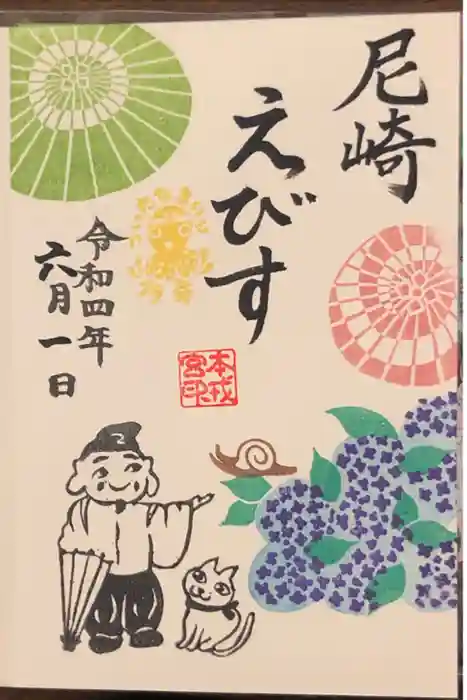 尼崎
えびす
令和四年
六月一日
本戎
宮印